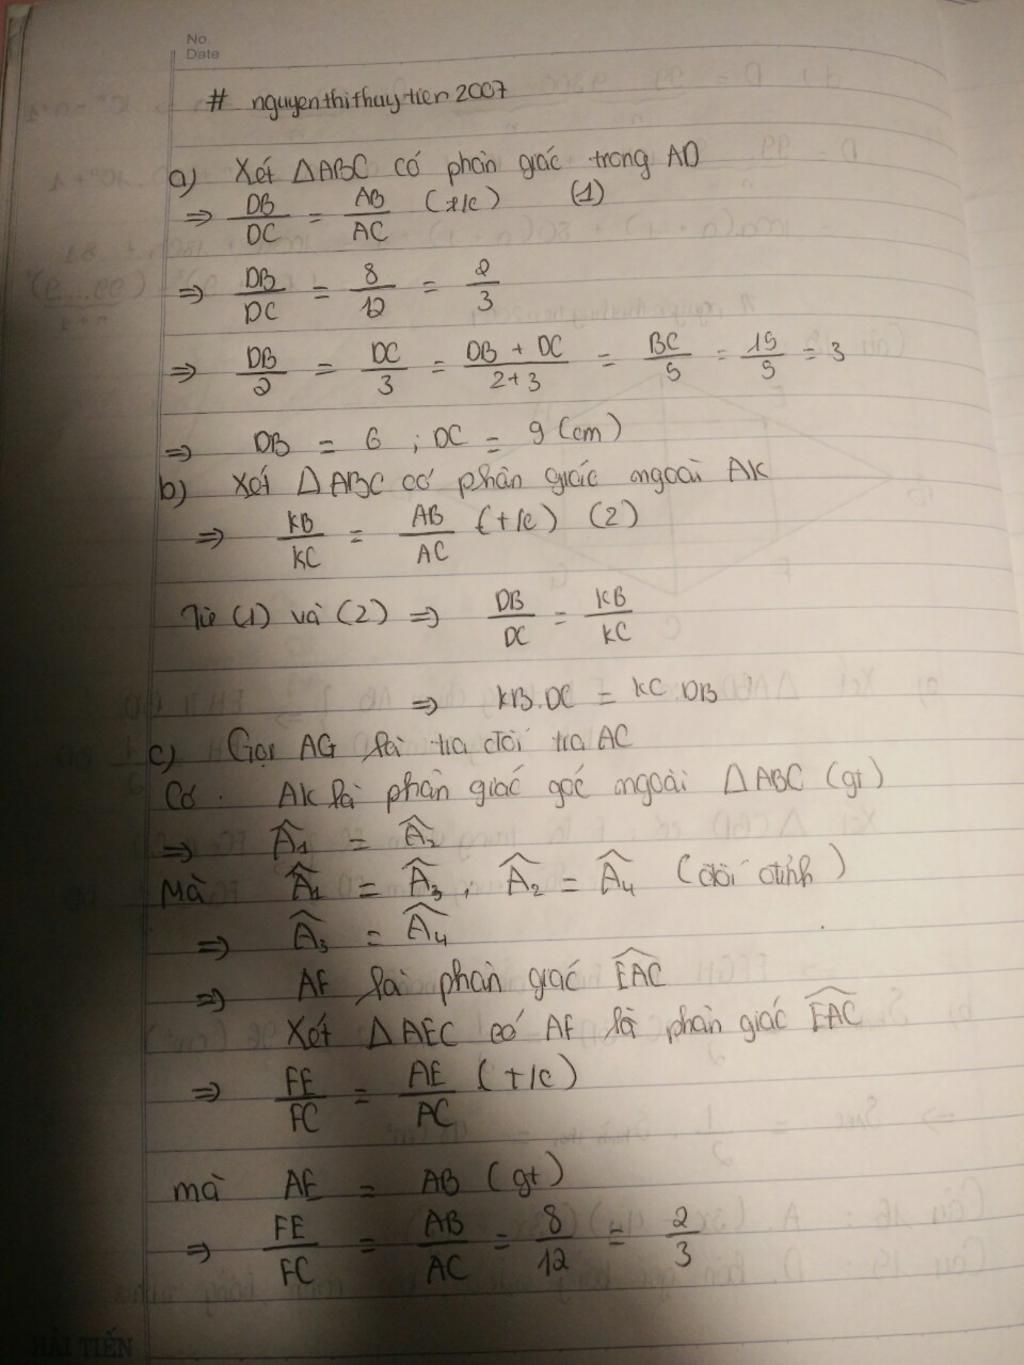 No.
Date
# nguyenthithuytien2007
a) Xét △ABC có phân giác trong AD
⇒ DB/DC = AB/AC (t/c) (1)
⇒ DB/DC = 8/12 = 2/3
⇒ DB/2 = DC/3 = DB + DC/2+3 = BC/5 = 15/5 = 3
⇒ DB = 6 ; DC = 9 (cm)
b) Xét △ABC có phân giác ngoài AK
⇒ KB/KC = AB/AC (t/c) (2)
Từ (1) và (2) ⇒ DB/DC = KB/KC
⇒ KB.DC = KC.DB
c) Gọi AG là tia đối tia AC
Có. AK là phân giác góc ngoài △ABC (gt)
⇒ Â1 = Â2
Mà Â1 = Â3, Â2 = Â4 (đối đỉnh)
⇒ Â3 = Â4
⇒ AF là phân giác EAC
Xét △AEC có AF là phân giác EAC
⇒ FE/FC = AE/AC (t/c)
mà AE = AB (gt)
⇒ FE/FC = AB/AC = 8/12 = 2/3
HẢI TIẾN